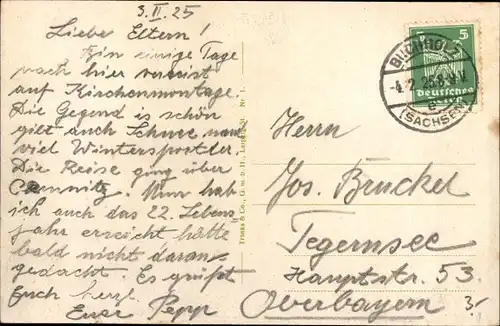 3. II. 25
Liebe Eltern!
Bin einige Tage
nach hier verreist
auf Kirchenmontage.
Die Gegend ist schön
gibt auch Schnee
viel Wintersportler.
Die Reise ging über
Chemnitz. Nun hab
ich auch das 22. Lebens
jahr erreicht hätte
bald nicht daran
gedacht. Es grüßt
Euch herzl.
Euer Pepp
Trinks & Co., G. m. b. H., Leipzig Nr. 1.
5 5
Deutsches
Reich
BUCHHOLZ
-4.2.25.8-9V.
(SACHSEN)
Herrn
Jos. Bruckel
Tegernsee
Hauptstr. 53.
Oberbayern
3,-